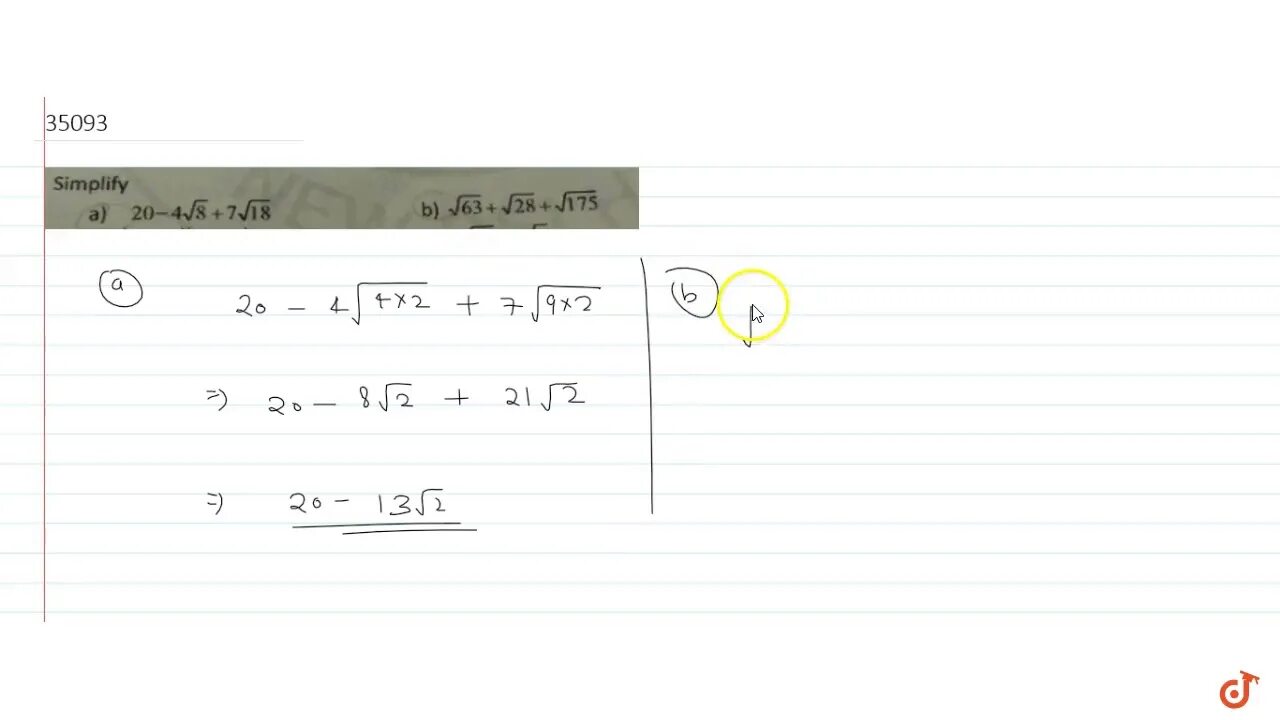 35093
Simplify
a) 20-4√8+7√18 b) √63+√28+√175
a
20 - 4√4×2 + 7√9×2
=) 20 - 8√2 + 21√2
=) 20 - 13√2
b √